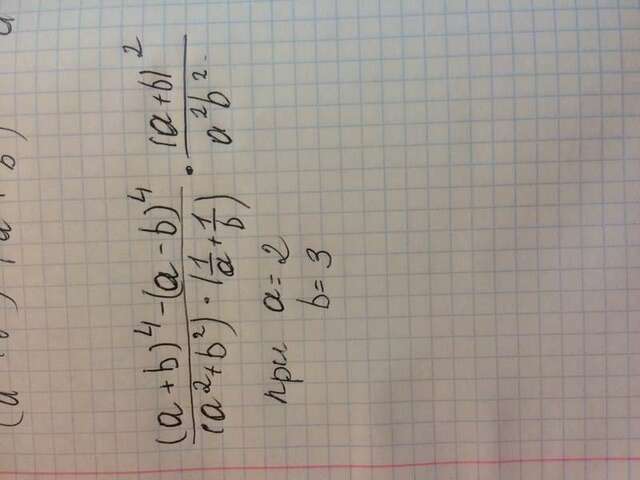 ((a+b)^4-(a-b)^4)/((a²+b²)·(1/a+1/b)) · (a+b)²/(a²b²)
при a=2
b=3